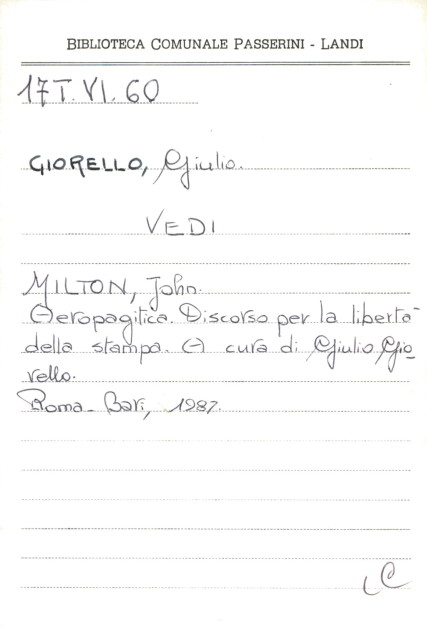 BIBLIOTECA COMUNALE PASSERINI - LANDI
17T.VI.60
GIORELLO, Giulio.
VEDI
MILTON, John.
Aeropagitica. Discorso per la libertà
della stampa. A cura di Giulio Gio
rello.
Roma-Bari, 1987.